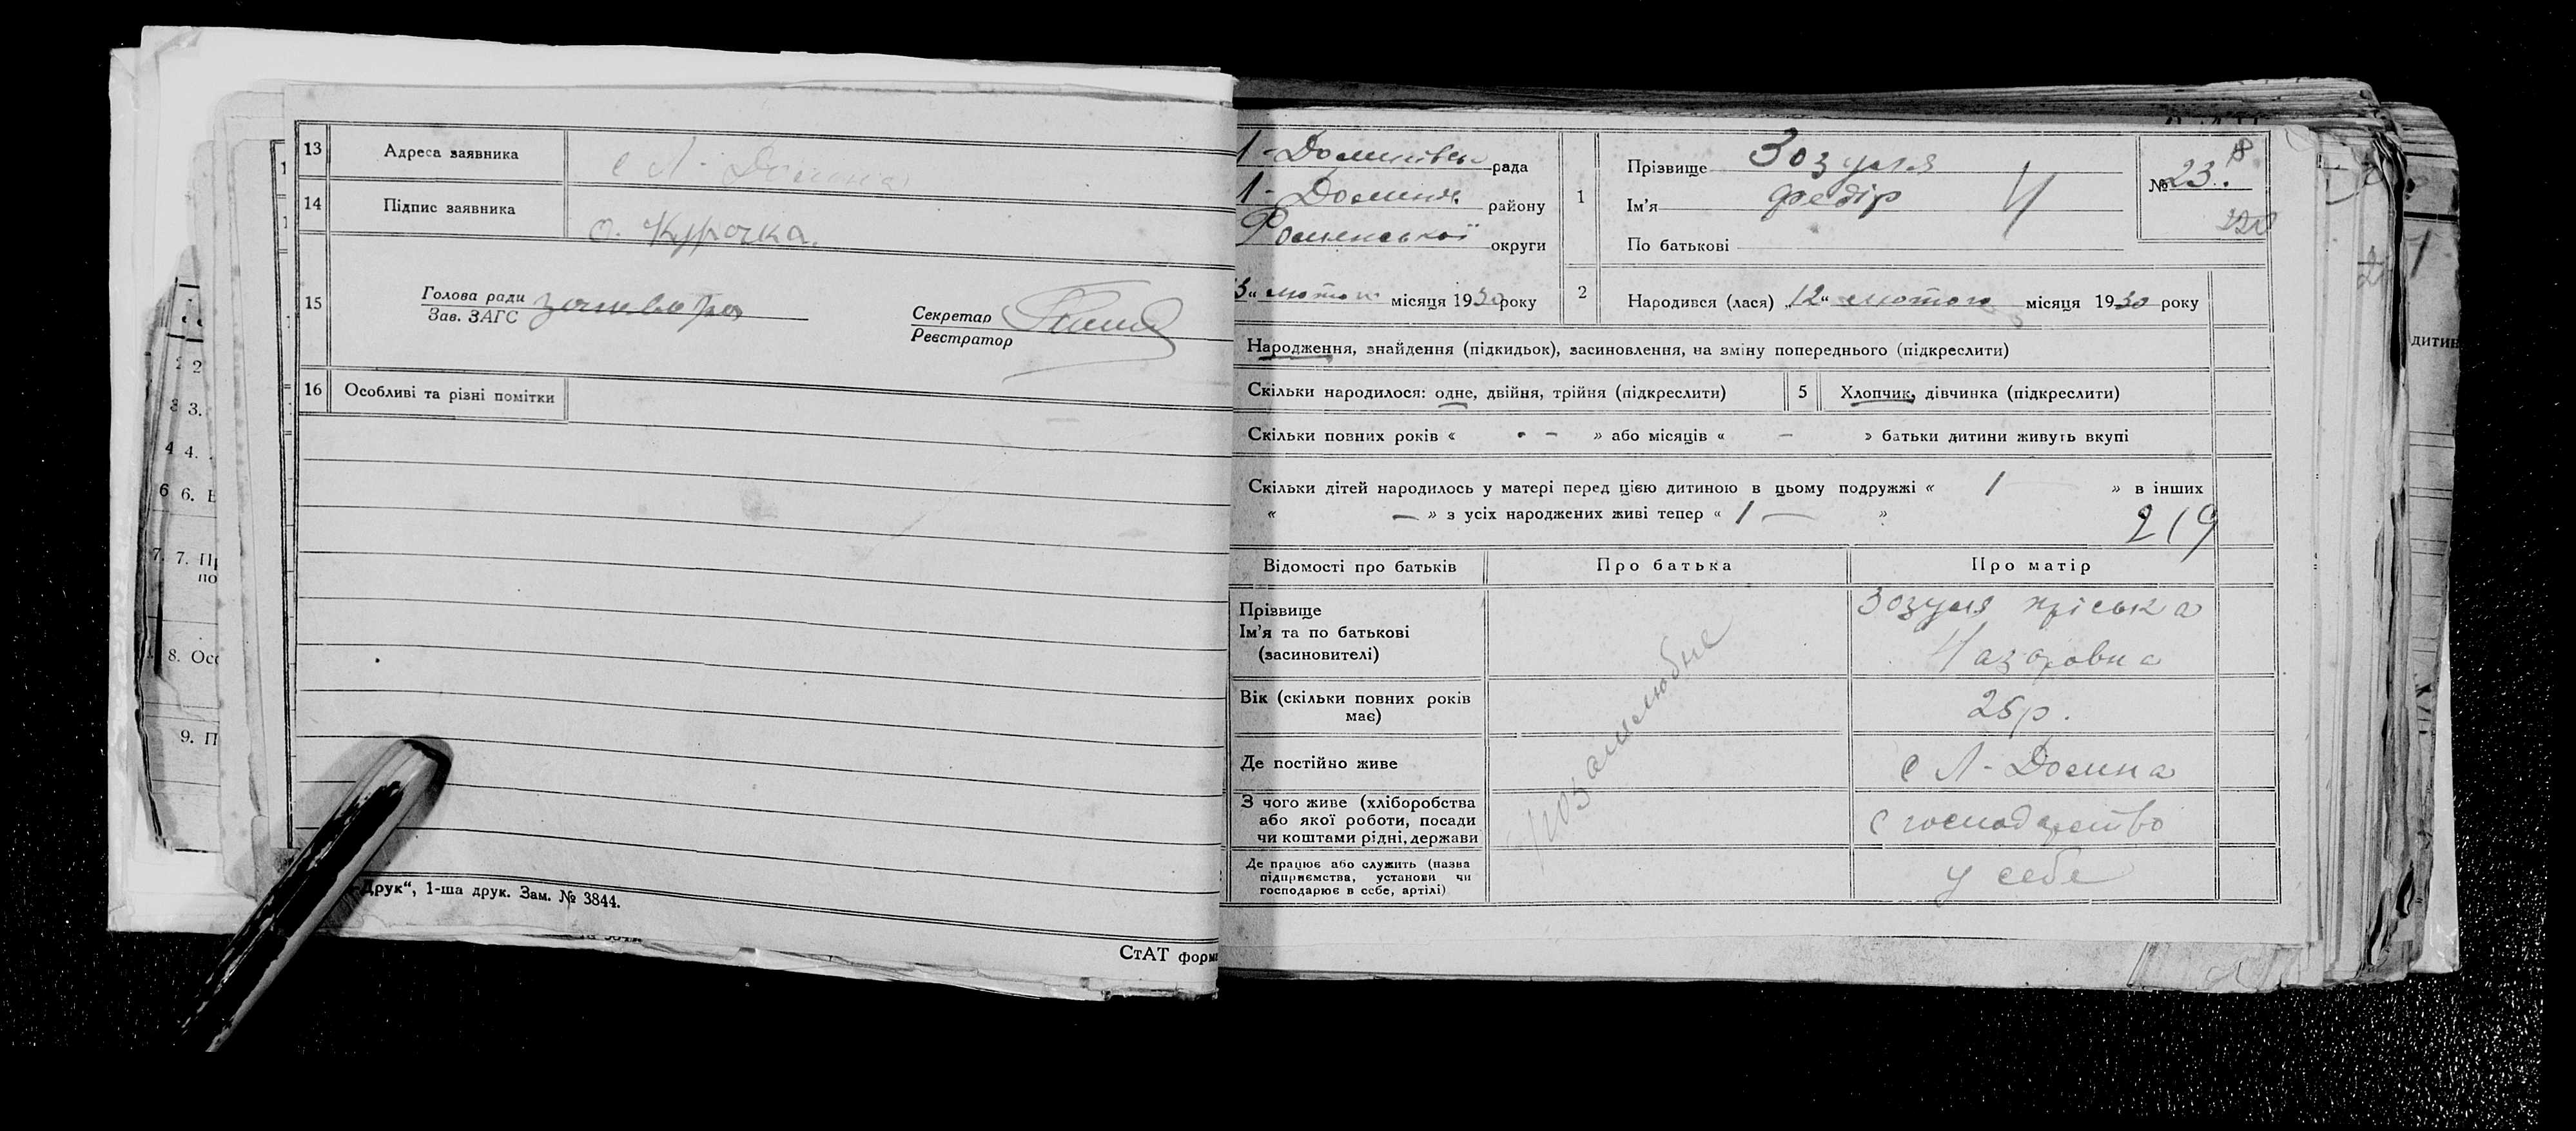 13 Адреса заявника с Л-Долина
14 Підпис заявника О. Курочка.
15 Голова ради
Зав. ЗАГС
Секретар
Реєстратор
16 Особливі та різні помітки
Друк“, 1-ша друк. Зам. № 3844.
СтАТ форм
2
3.
4.
6.
7.
по
8. Осо
9. П
рада
району
Роменської округи
лютого місяця 1930 року
1 Прізвище Зозуля
Ім'я Федір
По батькові
№ 23.
220
2 Народився (лася) „12“ лютого місяця 1930 року
Народження, знайдення (підкидьок), засиновлення, на зміну попереднього (підкреслити)
Скільки народилося: одне, двійня, трійня (підкреслити) 5 Хлопчик, дівчинка (підкреслити)
Скільки повних років « - » або місяців « - » батьки дитини живуть вкупі
Скільки дітей народилось у матері перед цією дитиною в цьому подружжі « 1 » в інших
« — » з усіх народжених живі тепер « 1 — »
219
Відомості про батьків Про батька Про матір
Прізвище
Ім'я та по батькові
(засиновителі)
Зозуля Пріська
Назаровна
Позашлюбне
Вік (скільки повних років
має)
25 р.
Де постійно живе с Л-Долина
З чого живе (хліборобства
або якої роботи, посади
чи коштами рідні, держави
с господарство
Де працює або служить (назва
підприємства, установи чи
господарює в себе, артілі)
у себе
дитин